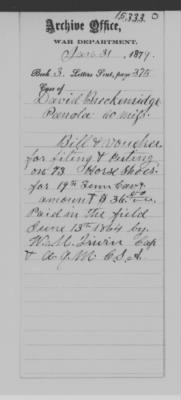 15,333. O
Archive Office,
WAR DEPARTMENT.
Jan. 31, 1879.
Book 3. Letters Sent, page 375.
Case of
David Breckenridge
Panola Co Miss.
Bill & voucher
for filing &
on 73 Horse Shoes
for 19th Tenn Cavy.
amount $ 36
Paid in the field
June 13th 1864 by
W. M. Irwin Cap
& A Q M C.S.A.